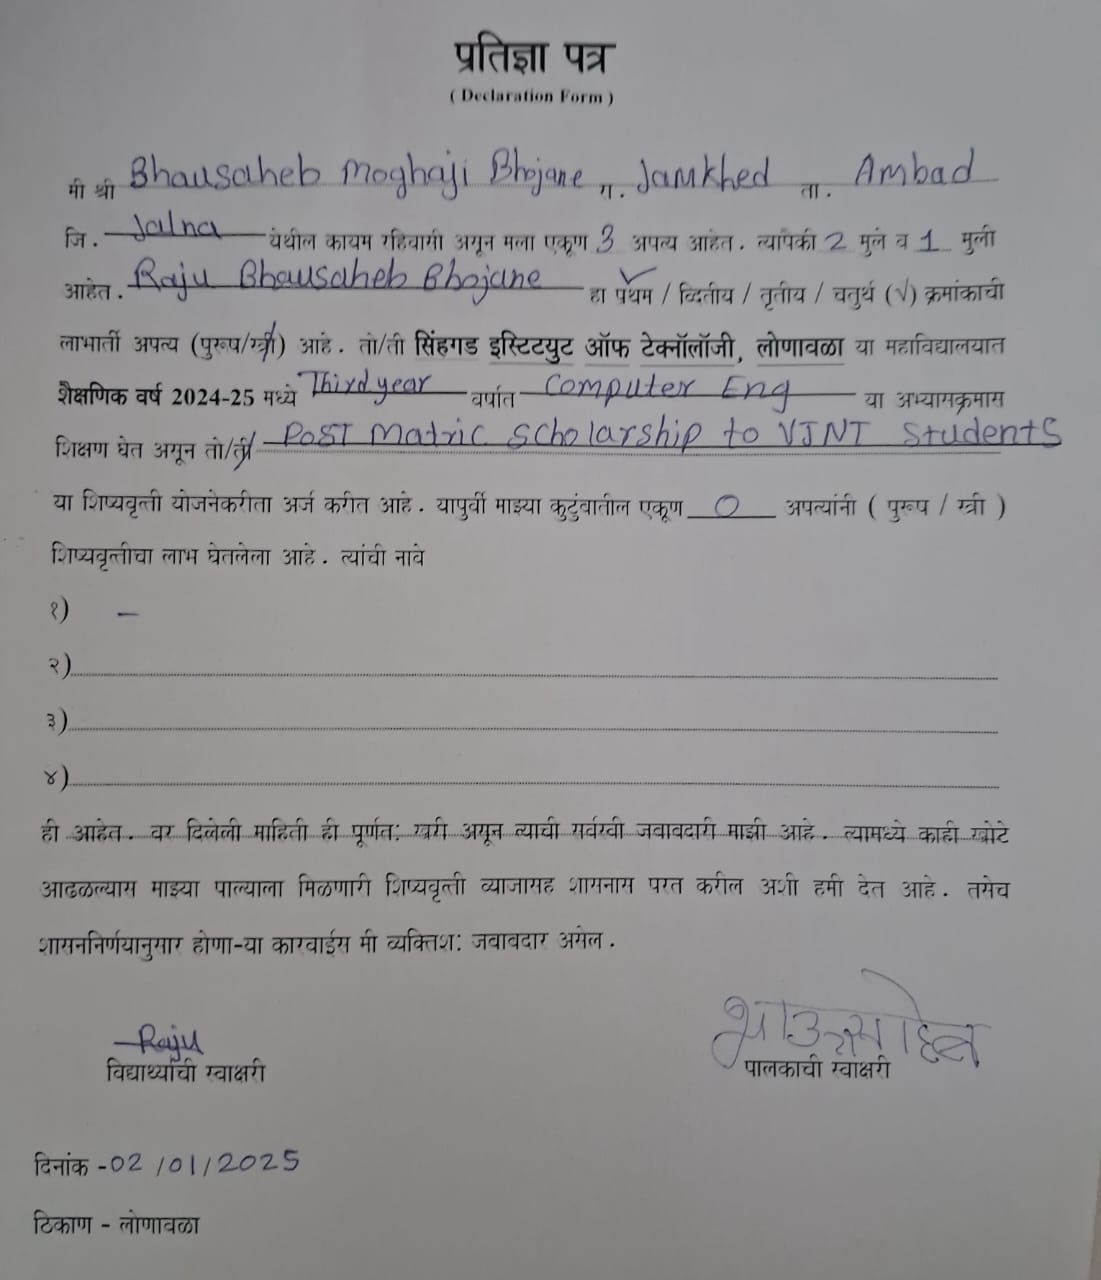 प्रतिज्ञा पत्र
( Declaration Form )
मी श्री Bhausaheb Moghaji Bhojane रा. Jamkhed ता. Ambad
जि. Jalna येथील कायम रहिवासी असून मला एकूण 3 अपत्य आहेत. त्यापैकी 2 मुले व 1 मुली
आहेत. Raju Bhausaheb Bhojane हा प्रथम / व्दितीय / तृतीय / चतुर्थ (√) क्रमांकाची
लाभार्ती अपत्य (पुरूष/स्त्री) आहे. तो/ती सिंहगड इस्टिटयुट ऑफ टेक्नॉलॉजी, लोणावळा या महाविद्यालयात
शैक्षणिक वर्ष 2024-25 मध्ये Third year वर्षात Computer Eng या अभ्यासक्रमास
शिक्षण घेत असून तो/ती Post Matric Scholarship to VJNT Students
या शिष्यवृत्ती योजनेकरीता अर्ज करीत आहे. यापुर्वी माझ्या कुटुंबातील एकूण 0 अपत्यांनी ( पुरूष / स्त्री )
शिष्यवृत्तीचा लाभ घेतलेला आहे. त्यांची नावे
१) –
२)
३)
४)
ही आहेत. वर दिलेली माहिती ही पूर्णत: खरी असून त्याची सर्वस्वी जबाबदारी माझी आहे. त्यामध्ये काही खोटे
आढळल्यास माझ्या पाल्याला मिळणारी शिष्यवृत्ती व्याजासह शासनास परत करील अशी हमी देत आहे. तसेच
शासननिर्णयानुसार होणा-या कारवाईस मी व्यक्तिश: जबाबदार असेल.
Raju भाऊसाहेब
विद्यार्थ्याची स्वाक्षरी पालकाची स्वाक्षरी
दिनांक -02/01/2025
ठिकाण - लोणावळा